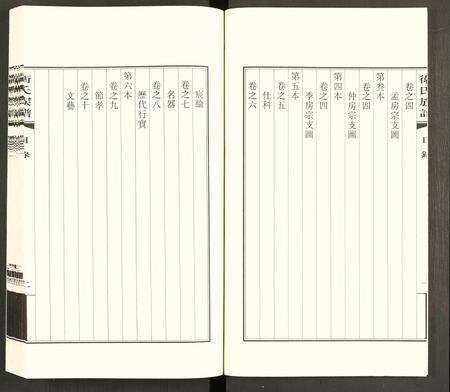 氏族譜
目錄
卷之四
孟房宗支圖
第叁本
卷之四
仲房宗支圖
第四本
卷之四
季房宗支圖
第五本
卷之五
仕科
卷之六
宸綸
卷之七
名器
卷之八
歷代行實
第六本
卷之九
節孝
卷之十
文藝